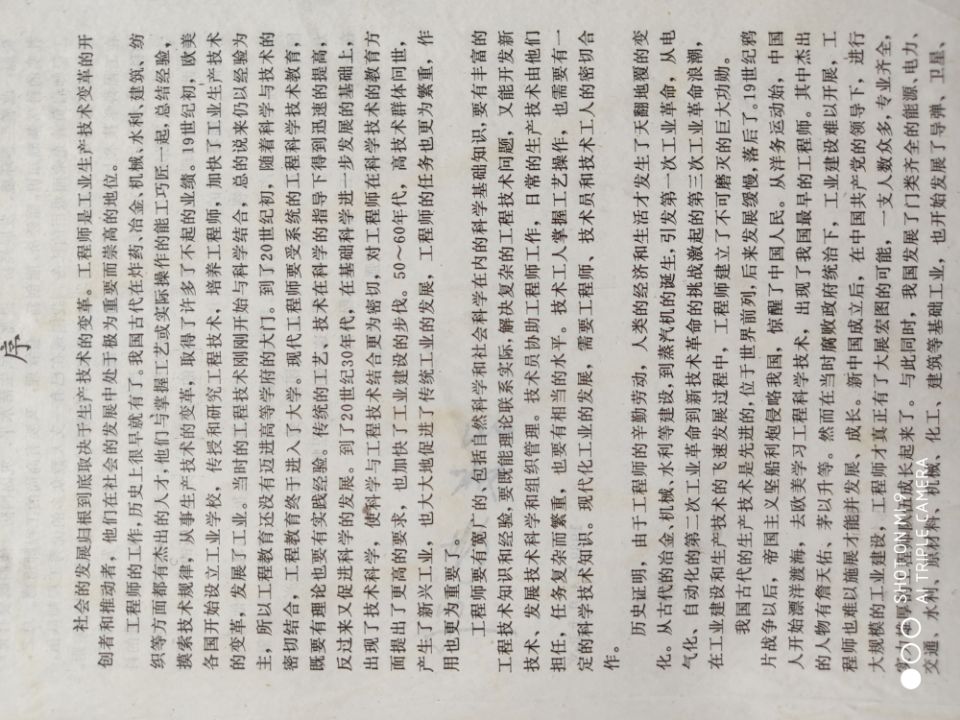 序
社会的发展归根到底取决于生产技术的变革。工程师是工业生产技术变革的开
创者和推动者，他们在社会的发展中处于极为重要而崇高的地位。
工程师的工作，历史上很早就有了。我国古代在炸药、冶金、机械、水利、建筑、纺
织等方面都有杰出的人才，他们与掌握工艺或实际操作的能工巧匠一起，总结经验，
摸索技术规律，从事生产技术的变革，取得了许多了不起的业绩。19世纪初，欧美
各国开始设立工业学校、传授和研究工程技术，培养工程师，加快了工业生产技术
的变革，发展了工业。当时的工程技术刚刚开始与科学结合，总的说来仍以经验为
主，所以工程教育还没有迈进高等学府的大门。到了20世纪初，随着科学与技术的
密切结合，工程教育终于进入了大学。现代工程师要受系统的工程科学技术教育，
既要有理论也要有实践经验。传统的工艺、技术在科学的指导下得到迅速的提高，
反过来又促进科学的发展。到了20世纪30年代，在基础科学进一步发展的基础上，
出现了技术科学，使科学与工程技术结合更为密切，对工程师在科学技术的教育方
面提出了更高的要求，也加快了工业建设的步伐。50～60年代，高技术群体问世，
产生了新兴工业，也大大地促进了传统工业的发展，工程师的任务也更为繁重，作
用也更为重要了。
工程师要有宽广的、包括自然科学和社会科学在内的科学基础知识，要有丰富的
工程技术知识和经验，要既能理论联系实际，解决复杂的工程技术问题，又能开发新
技术、发展技术科学和组织管理。技术员协助工程师工作，日常的生产技术由他们
担任，任务复杂而繁重，也要有相当的水平。技术工人掌握工艺操作，也需要有一
定的科学技术知识。现代化工业的发展，需要工程师、技术员和技术工人的密切合
作。
历史证明，由于工程师的辛勤劳动，人类的经济和生活才发生了天翻地覆的变
化。从古代的冶金、机械、水利等建设，到蒸汽机的诞生，引发第一次工业革命，从电
气化、自动化的第二次工业革命到新技术革命的挑战激起的第三次工业革命浪潮，
在工业建设和生产技术的飞速发展过程中，工程师建立了不可磨灭的巨大功勋。
我国古代的生产技术是先进的，位于世界前列，后来发展缓慢，落后了。19世纪鸦
片战争以后，帝国主义坚船利炮侵略我国，惊醒了中国人民。从洋务运动始，中国
人开始漂洋渡海，去欧美学习工程科学技术，出现了我国最早的工程师。其中杰出
的人物有詹天佑、茅以升等。然而在当时腐败政府统治下，工业建设难以开展，工
程师也难以施展才能并发展、成长。新中国成立后，在中国共产党的领导下，进行
大规模的工业建设，工程师才真正有了大展宏图的可能，一支人数众多，专业齐全，
成长起来了。与此同时，我国发展了门类齐全的能源、电力、
交通、水利、原材料、机械、化工、建筑等基础工业，也开始发展了导弹、卫星、
SHOT ON MI 9
AI TRIPLE CAMERA